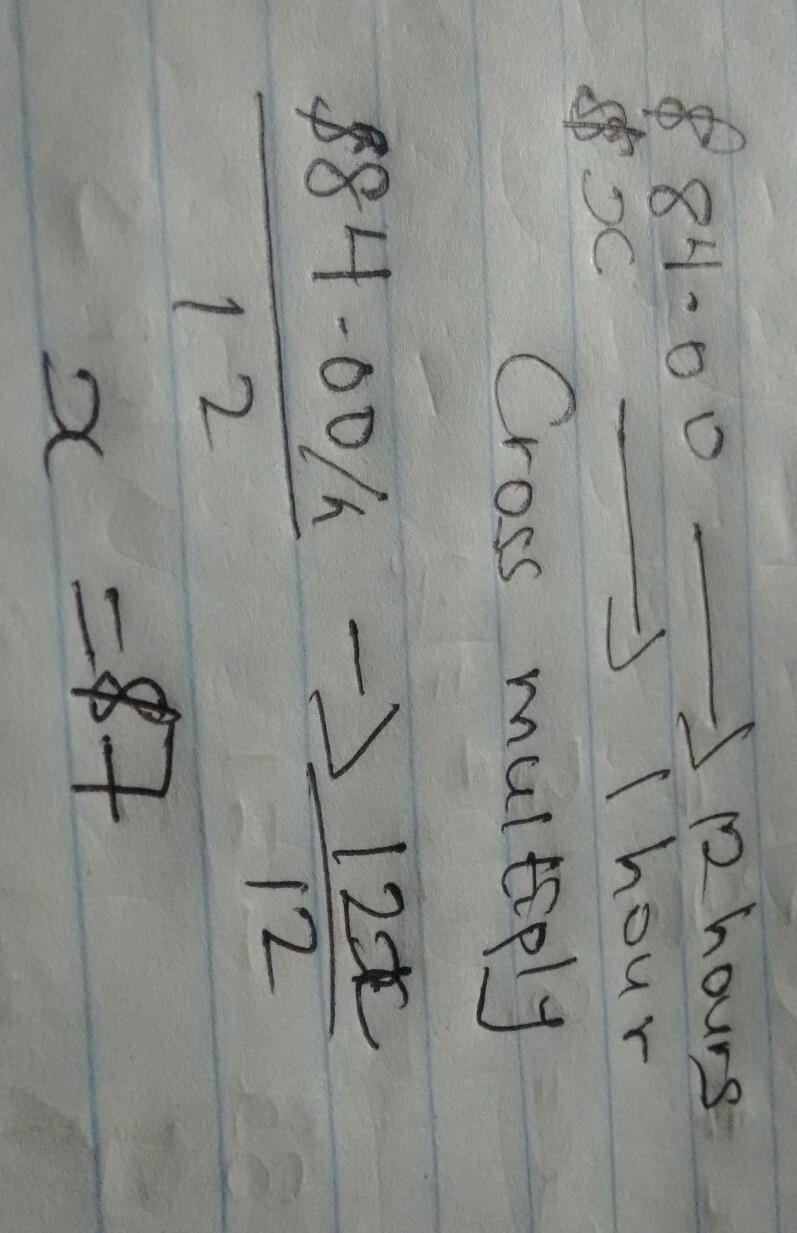 $84.00 → 12 hours
$x → 1 hour
Cross multiply
$84.00/h → 12x
12 12
x = $7